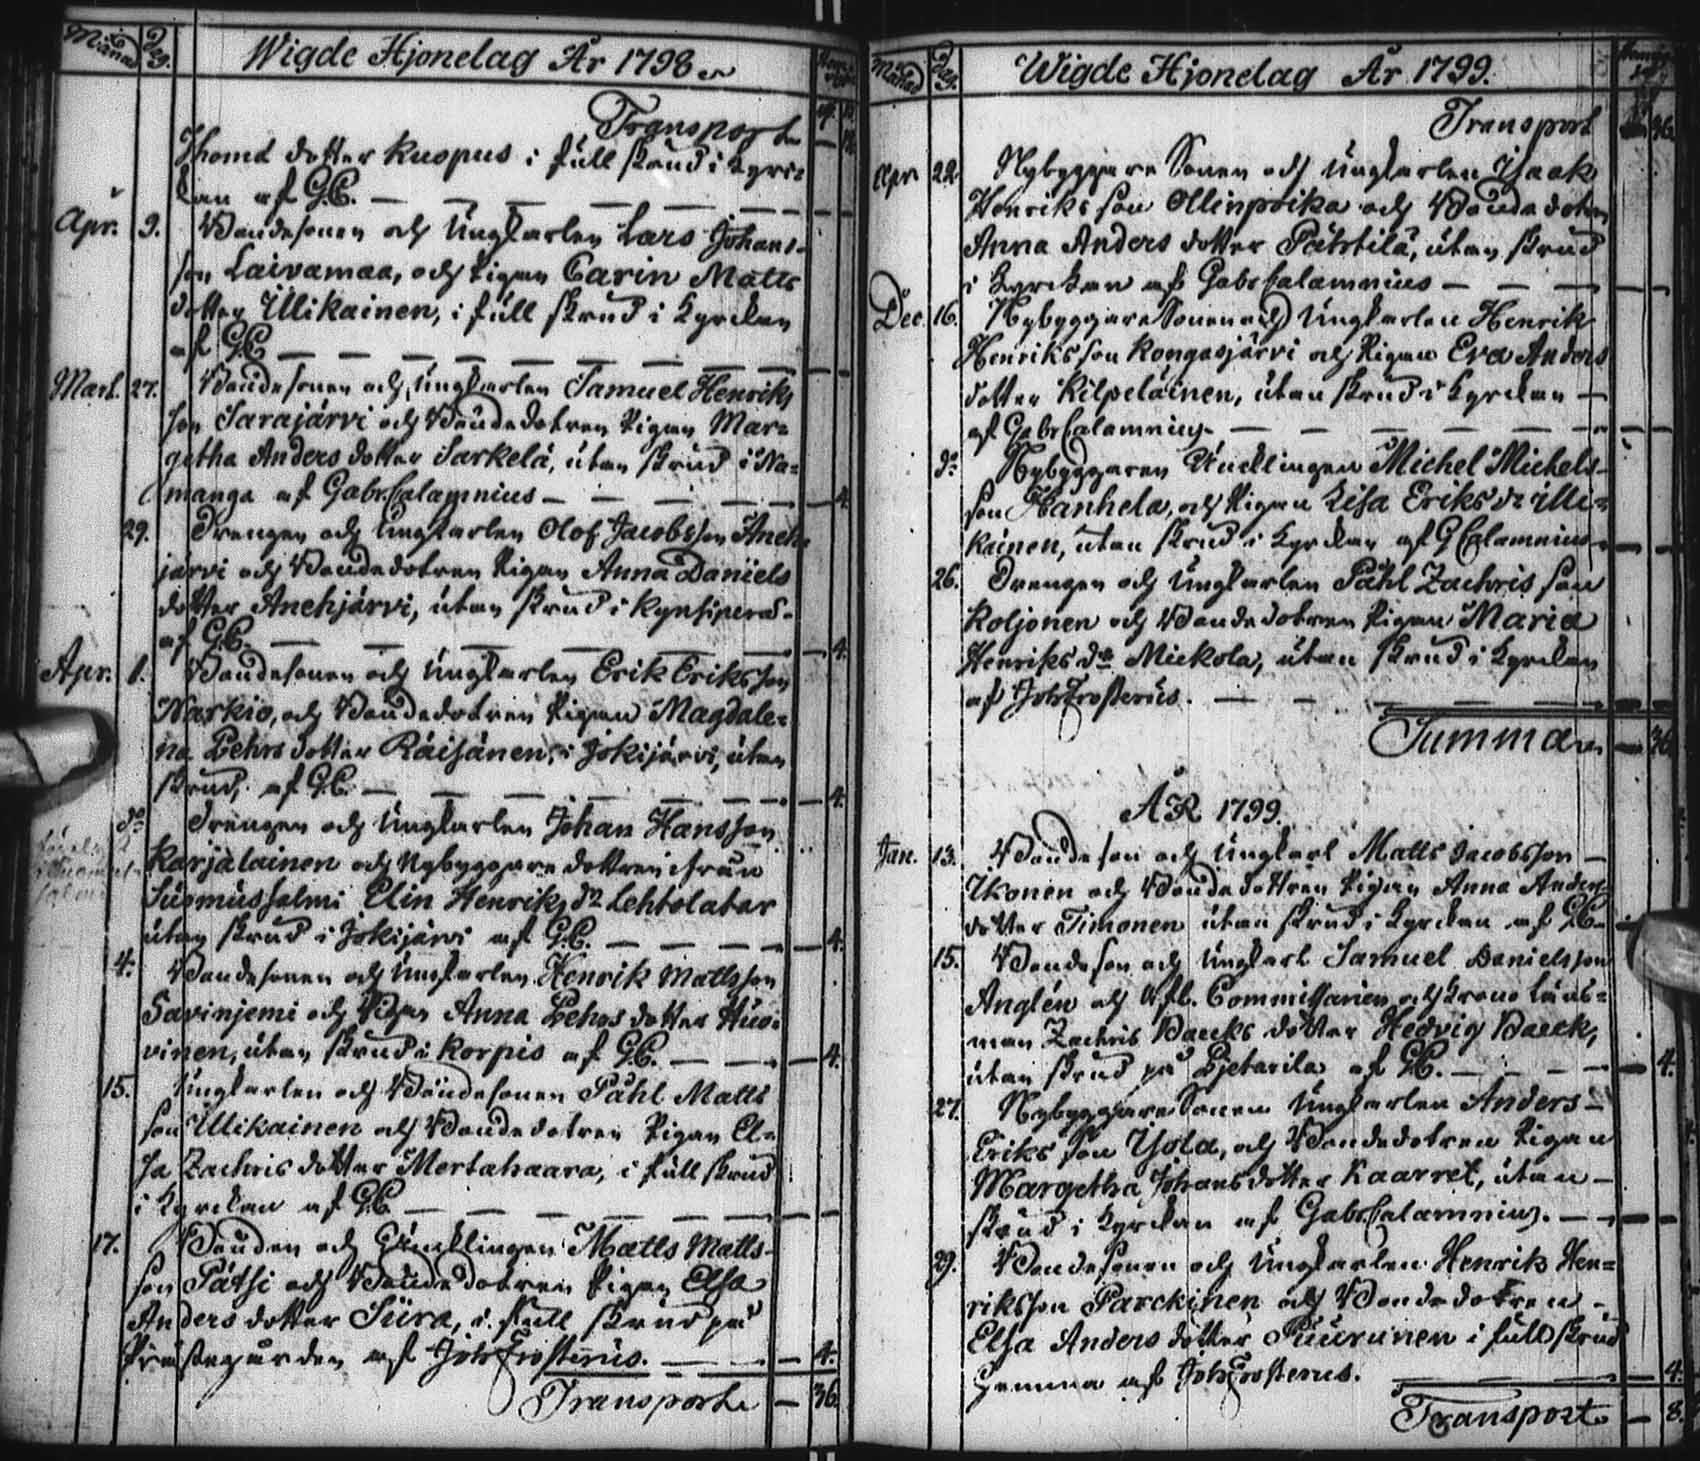 Månad
Dag.
Wigde Hjonelag År 1798
Transport 12
Thomæ dotter Kuopus i full skrud i Kyrc=
kan af G.C. — — — —
Apr. 9. Bondesonen och Ungkarlen Lars Johans-
son Laivamaa, och Pigan Carin Matts
dotter Ülikainen, i full skrud i Kyrckan
af G.C. — — — —
Mart. 27. Bondesonen och Ungkarlen Samuel Henriks
son Sarajärvi och Bondedotren Pigan Mar=
getha Anders dotter Särkelä, utan skrud i Na=
manga af Gabr. Calamnius — — — 4.
29. Drengen och Ungkarlen Olof Jacobsson Aneh
järvi och Bondedotren Pigan Anna Daniels
dotter Anehjärvi, utan skrud i Kynsiperä-
af G.C. — — — — 4.
Apr. 1. Bondesonen och Ungkarlen Erik Eriksson
Narkio, och Bondedotren Pigan Magdale=
na Pehrs dotter Räisänen, i Jokijärvi, utan
skrud, af G.C. — — — 4.
do Drengen och Ungkarlen Johan Hansson
Karjalainen och Nybyggare dottren ifrån
Suomussalmi Elin Henriks dr Lehtolatar
utan skrud i Jokijärvi af G.C. — — — 4.
4. Bondesonen och Ungkarlen Henrik Mattsson
Savinjemi och Pigan Anna Pehrs dotter Huo=
vinen, utan skrud i Korpis af G.C. — — 4.
15. Ungkarlen och Bondesonen Påhl Matts
son Ülikainen och Bondedotren Pigan El=
sa Zachris dotter Mertahaara, i full skrud
i Kyrckan af G.C. — — — —
17. Bonden och Encklingen Matts Matts-
son Pätsi och Bondedotren Pigan Elsa
Anders dotter Süra, i full skrud på
Prästegården af Joh. Frosterus. — — 4.
Transport — 36.
Månad
Dag.
Wigde Hjonelag År 1799.
Transport 36
Apr 22. Nybyggare Sonen och Ungkarlen Isaak
Henriks son Ollinpoika och Bonde dotren
Anna Anders dotter Pätsilä, utan skrud
i Kyrckan af Gabr. Calamnius — — —
Dec. 16. Nybyggare Sonen och Ungkarlen Henrik
Henriksson Kongasjärvi och Pigan Eva Anders
dotter Kilpeläinen, utan skrud i Kyrckan —
af Gabr. Calamnius — — — —
do Nybyggaren Encklingen Michel Michels-
son Hanhela, och Pigan Lisa Eriks dr Ülli=
kainen, utan skrud i Kyrckan af G Calamnius —
26. Drengen och Ungkarlen Påhl Zachris son
Koljonen och Bondedotren Pigan Maria
Henriks dr Mickola, utan skrud i Kyrckan
af Joh. Frosterus. — — —
Summa — 36
ÅR 1799.
Jan. 13. Bonde son och Ungkarl Matts Jacobsson —
Ikonen och Bondedottren Pigan Anna Anders
dotter Timonen utan skrud i Kyrckan af G.C. —
15. Bondeson och Ungkarl Samuel Danielsson
Anglén och Commissarien och Krono Läns=
man Zachris Baecks dotter Hedvig Baeck,
utan skrud på Pjetarila af G.C. — — — 4.
27. Nybyggare Sonen Ungkarlen Anders —
Eriks son Ysola, och Bondedotren Pigan
Margetha Johansdotter Kaarret, utan —
skrud i Kyrckan af Gabr. Calamnius. — —
29. Bondesonen och Ungkarlen Henrik Hen=
riksson Parckinen och Bondedotren —
Elsa Anders dotter Puurunen i full skrud
hemma af Joh. Frosterus. — — 4.
Transport — 8.